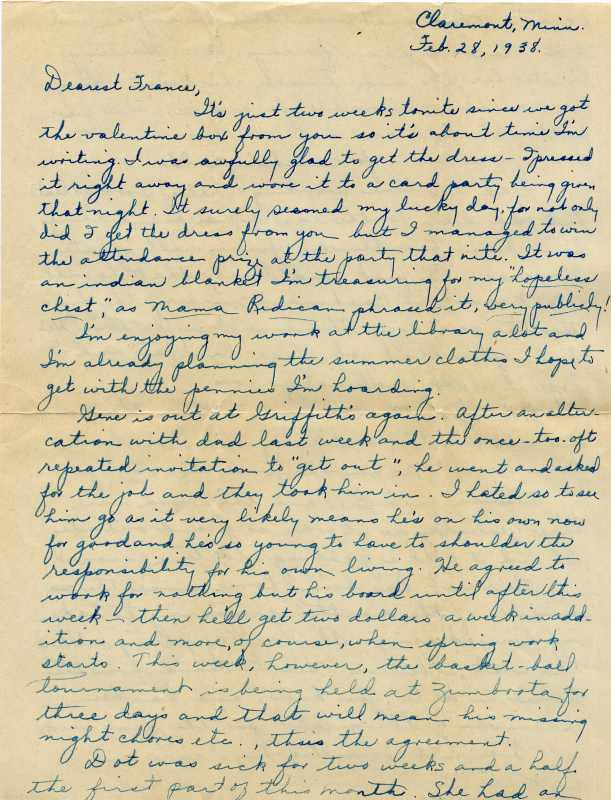 Claremont, Minn.
Feb. 28, 1938.
Dearest France,
It's just two weeks tonite since we got
the valentine box from you so it's about time I'm
writing. I was awfully glad to get the dress - I pressed
it right away and wore it to a card party being given
that night. It surely seemed my lucky day, for not only
did I get the dress from you but I managed to win
the attendance prize at the party that nite. It was
an indian blanket I'm treasuring for my "hopeless
chest," as Mama Redican phrased it, very publicly!
I'm enjoying my work at the library a lot and
I'm already planning the summer clothes I hope to
get with the pennies I'm hoarding.
Gene is out at Griffith's again. After an alter-
cation with dad last week and the once-too-oft
repeated invitation to "get out", he went and asked
for the job and they took him in. I hated so to see
him go as it very likely means he's on his own now
for good and he's so young to have to shoulder the
responsibility for his own living. He agreed to
work for nothing but his board until after this
week - then he'll get two dollars a week in add-
ition and more, of course, when spring work
starts. This week, however, the basket-ball
tournament is being held at Zumbrota for
three days and that will mean his missing
night chores etc., thus the agreement.
Dot was sick for two weeks and a half
the first part of this month. She had an